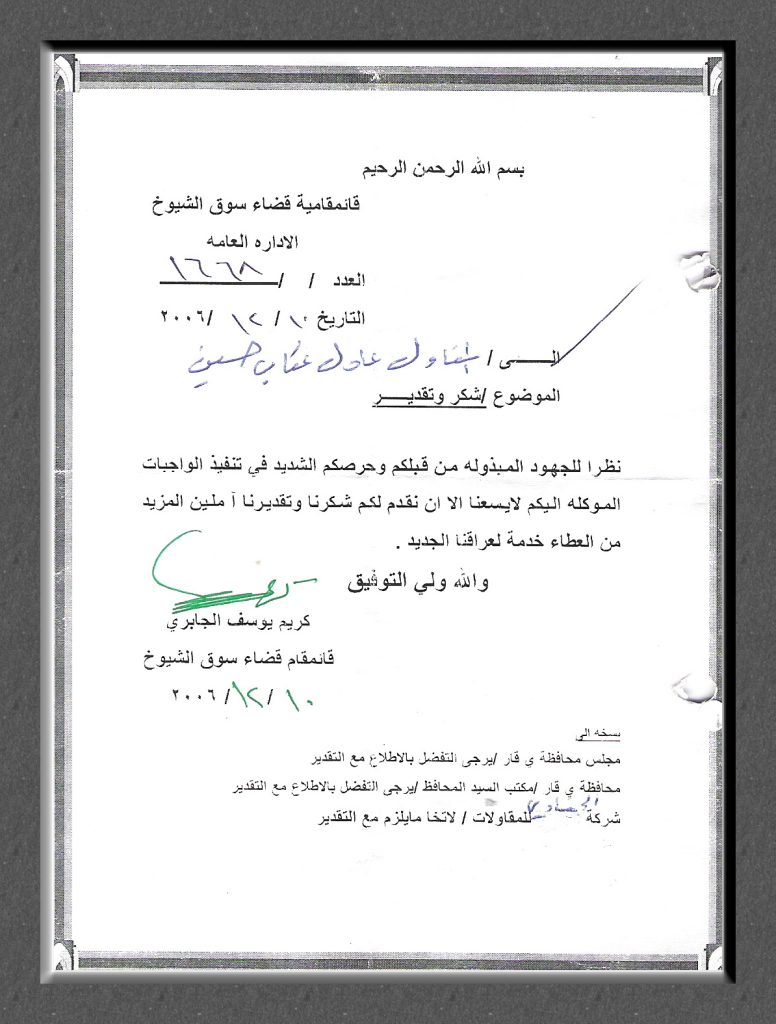 بسم الله الرحمن الرحيم
قائمقامية قضاء سوق الشيوخ
الاداره العامه
العدد / / ١٦٦٨
التاريخ ١٠ / ١٢ /٢٠٠٦
الـــــى / المقاول عادل عكاب حسين
الموضوع /شكر وتقديـــر
نظرا للجهود المبذوله من قبلكم وحرصكم الشديد في تنفيذ الواجبات
الموكله اليكم لايسعنا الا ان نقدم لكم شكرنا وتقديرنا آ ملين المزيد
من العطاء خدمة لعراقنا الجديد .
والله ولي التوفيق
كريم يوسف الجابري
قائمقام قضاء سوق الشيوخ
١٠ /١٢/ ٢٠٠٦
نسخه الى
مجلس محافظة ي قار /يرجى التفضل بالاطلاع مع التقدير
محافظة ي قار /مكتب السيد المحافظ /يرجى التفضل بالاطلاع مع التقدير
شركة للمقاولات / لاتخا مايلزم مع التقدير